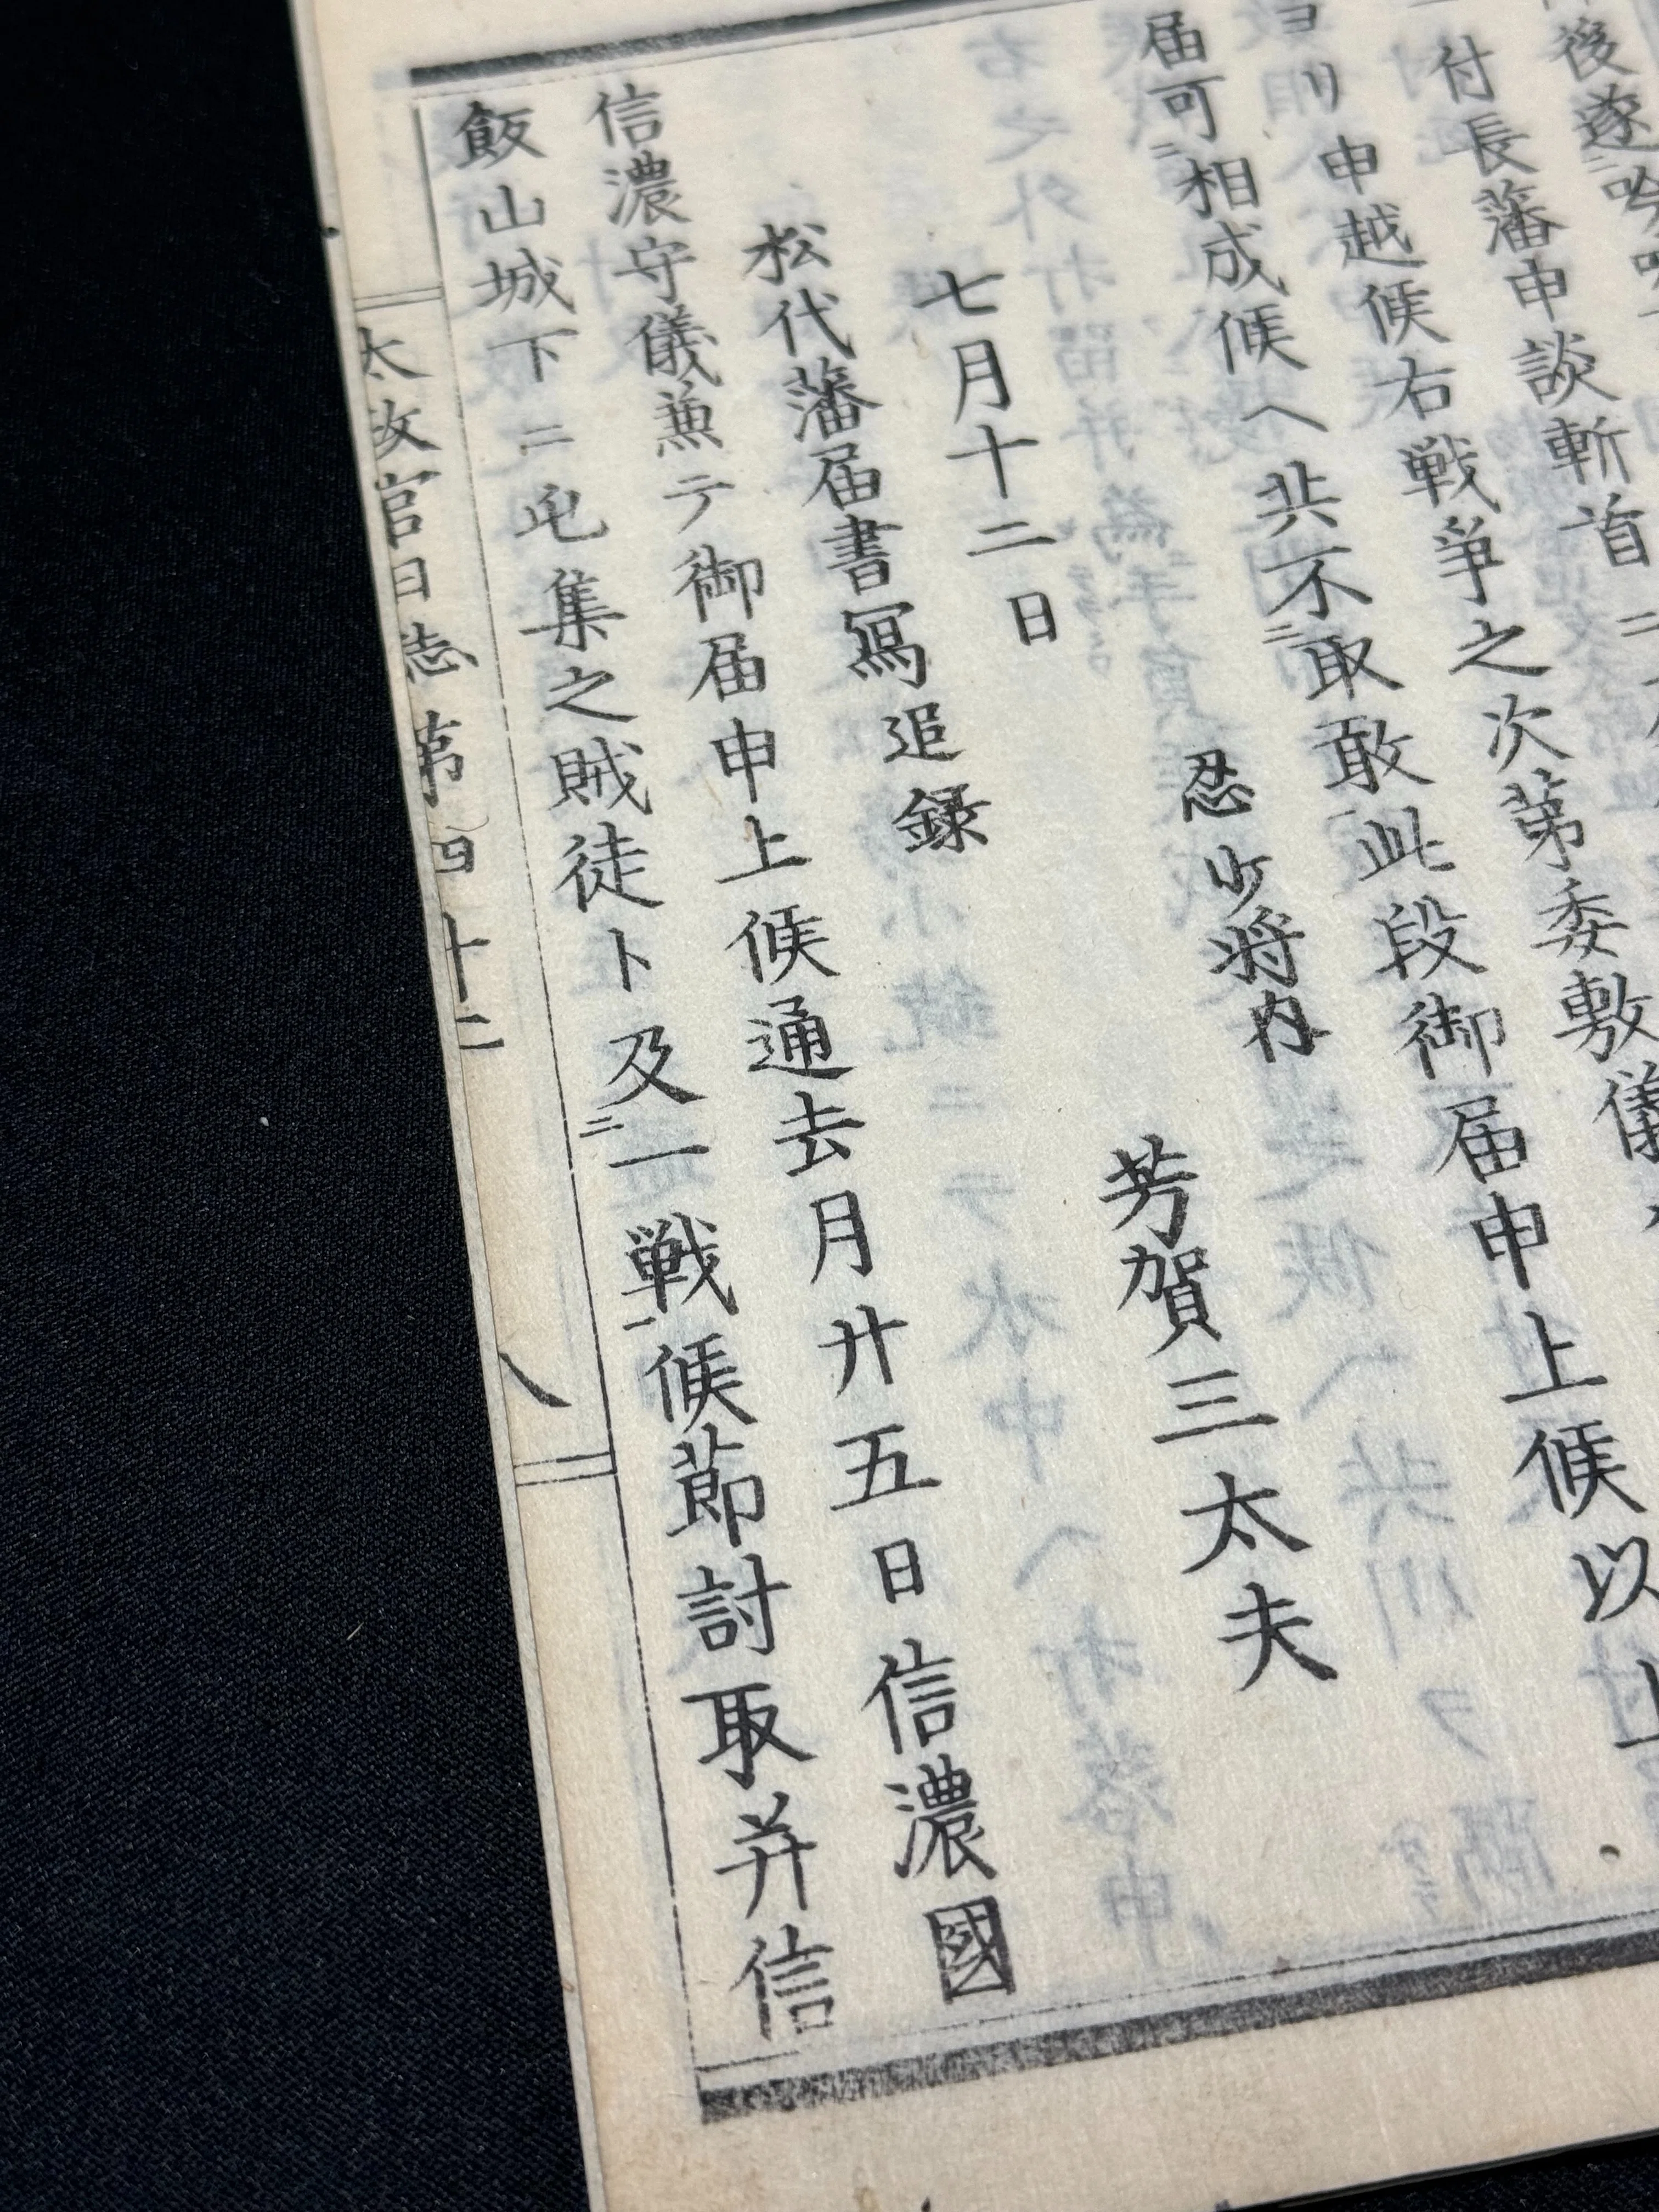 後遂
付長藩申談斬首ニ
ヨリ申越候右戦爭之次第委敷儀
届可ニ相成候ヘ共不ニ取敢一此段御届申上候以上
忍少将内
芳賀三太夫
七月十二日
松代藩届書寫追録
信濃守儀兼テ御届申上候通去月廿五日信濃國
飯山城下ニ屯集之賊徒ト及ニ一戦一候節討取并信
太政官日志第四十二
八